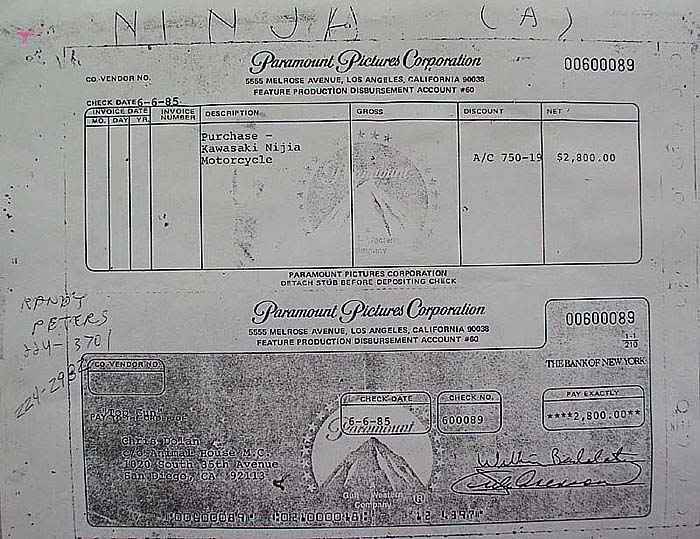 NINJA (A)
Paramount Pictures Corporation
5555 MELROSE AVENUE, LOS ANGELES, CALIFORNIA 90038
FEATURE PRODUCTION DISBURSEMENT ACCOUNT #60
00600089
CO. VENDOR NO.
CHECK DATE 6-6-85
INVOICE DATE INVOICE NUMBER DESCRIPTION GROSS DISCOUNT NET
MO. DAY YR.
Purchase -
Kawasaki Nijia
Motorcycle A/C 750-19 $2,800.00
Paramount
PARAMOUNT PICTURES CORPORATION
DETACH STUB BEFORE DEPOSITING CHECK
RANDY
PETERS
224-3701
Paramount Pictures Corporation
5555 MELROSE AVENUE, LOS ANGELES, CALIFORNIA 90038
FEATURE PRODUCTION DISBURSEMENT ACCOUNT #60
00600089
1-1
210
THE BANK OF NEW YORK
CO. VENDOR NO.
CHECK DATE CHECK NO. PAY EXACTLY
6-6-85 600089 ****2,800.00**
Paramount
Chris Dolan
c/o Animal House M.C.
1020 South 36th Avenue
San Diego, CA 92113
Gulf + Western
Company